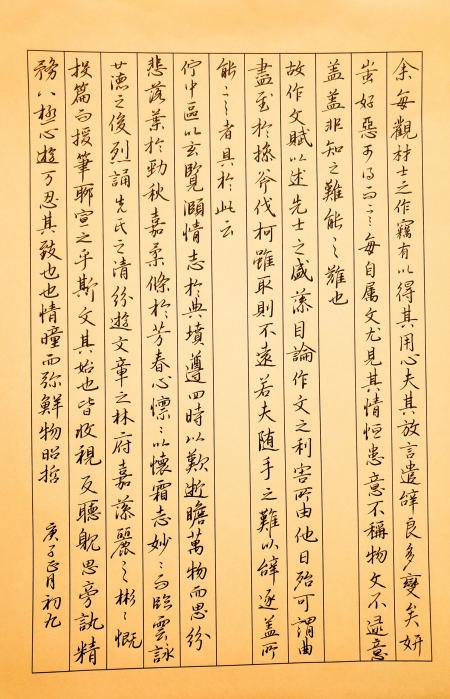 余每觀材士之作竊有以得其用心夫其放言遣辭良多變矣妍
蚩好惡可得而言每自属文尤見其情恒患意不稱物文不逮意
盖盖非知之難能之難也
故作文賦以述先士之盛藻因論作文之利害所由他日殆可謂曲
盡至於操斧伐柯雖取則不遠若夫随手之難以辭逐盖所
能言者具於此云
佇中區以玄覽頤情志於典墳遵四時以歎逝瞻萬物而思紛
悲落葉於勁秋嘉柔條於芳春心懍〻以懷霜志妙〻而臨雲詠
世德之俊烈誦先氏之清紛遊文章之林府嘉藻麗之彬〻慨
投篇而援筆聊宣之乎斯文其始也皆收視反聽躭思旁訊精
務八極心遊万忍其致也也情瞳而弥鮮物昭晢
庚子正月初九